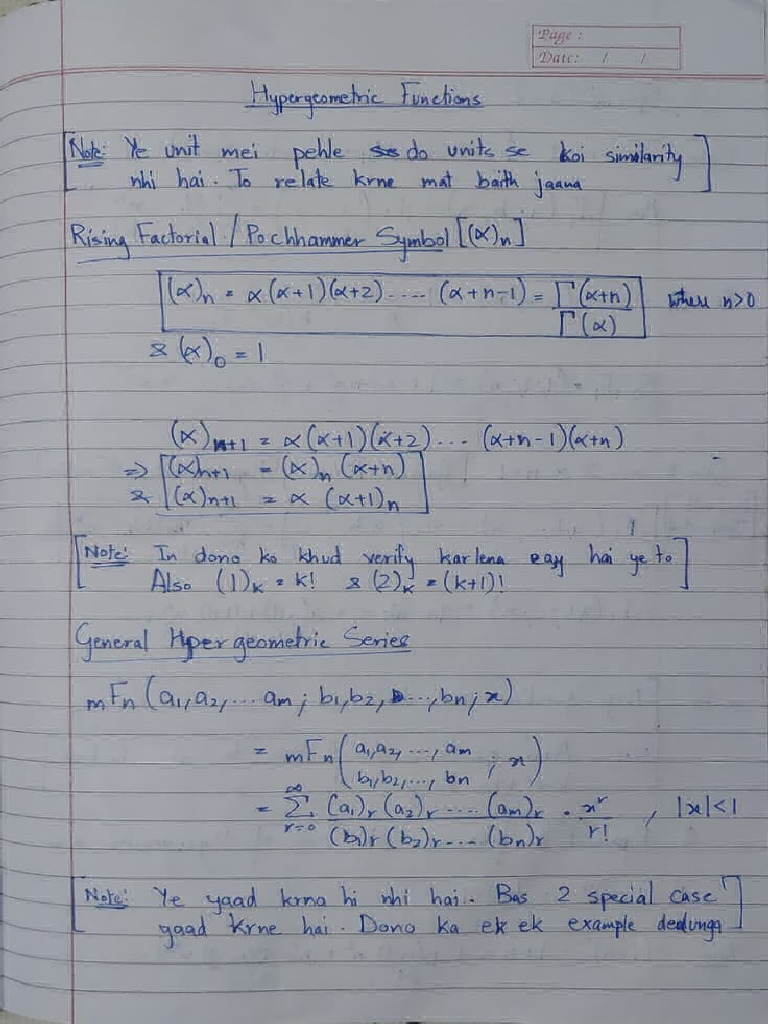 Page :
Date: / /
Hypergeometric Functions
[Note: Ye unit mei pehle do units se koi similarity
nhi hai. To relate krne mat baith jaana]
Rising Factorial / Pochhammer Symbol [(α)n]
(α)n = α(α+1)(α+2)..... (α+n-1) = Γ(α+n)/Γ(α) where n>0
& (α)0 = 1
(α)n+1 = α(α+1)(α+2)... (α+n-1)(α+n)
⇒ (α)n+1 = (α)n (α+n)
& (α)n+1 = α (α+1)n
[Note: In dono ko khud verify karlena easy hai ye to
Also (1)k = k! & (2)k = (k+1)!]
General Hpergeometric Series
mFn (a1,a2,... am ; b1,b2, ...,bn; x)
= mFn (a1,a2, ..., am / b1,b2,..., bn ; x)
= ∞Σr=0 (a1)r (a2)r ..... (am)r / (b1)r (b2)r.... (bn)r . x^r / r! , |x|<1
[Note: Ye yaad krna hi nhi hai. Bas 2 special case
yaad krne hai. Dono ka ek ek example dedunga]